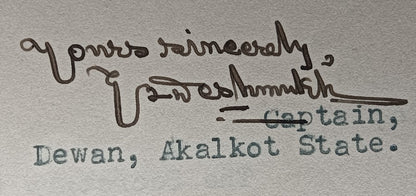 Yours sincerely,
Deshmukh
Captain,
Dewan, Akalkot State.